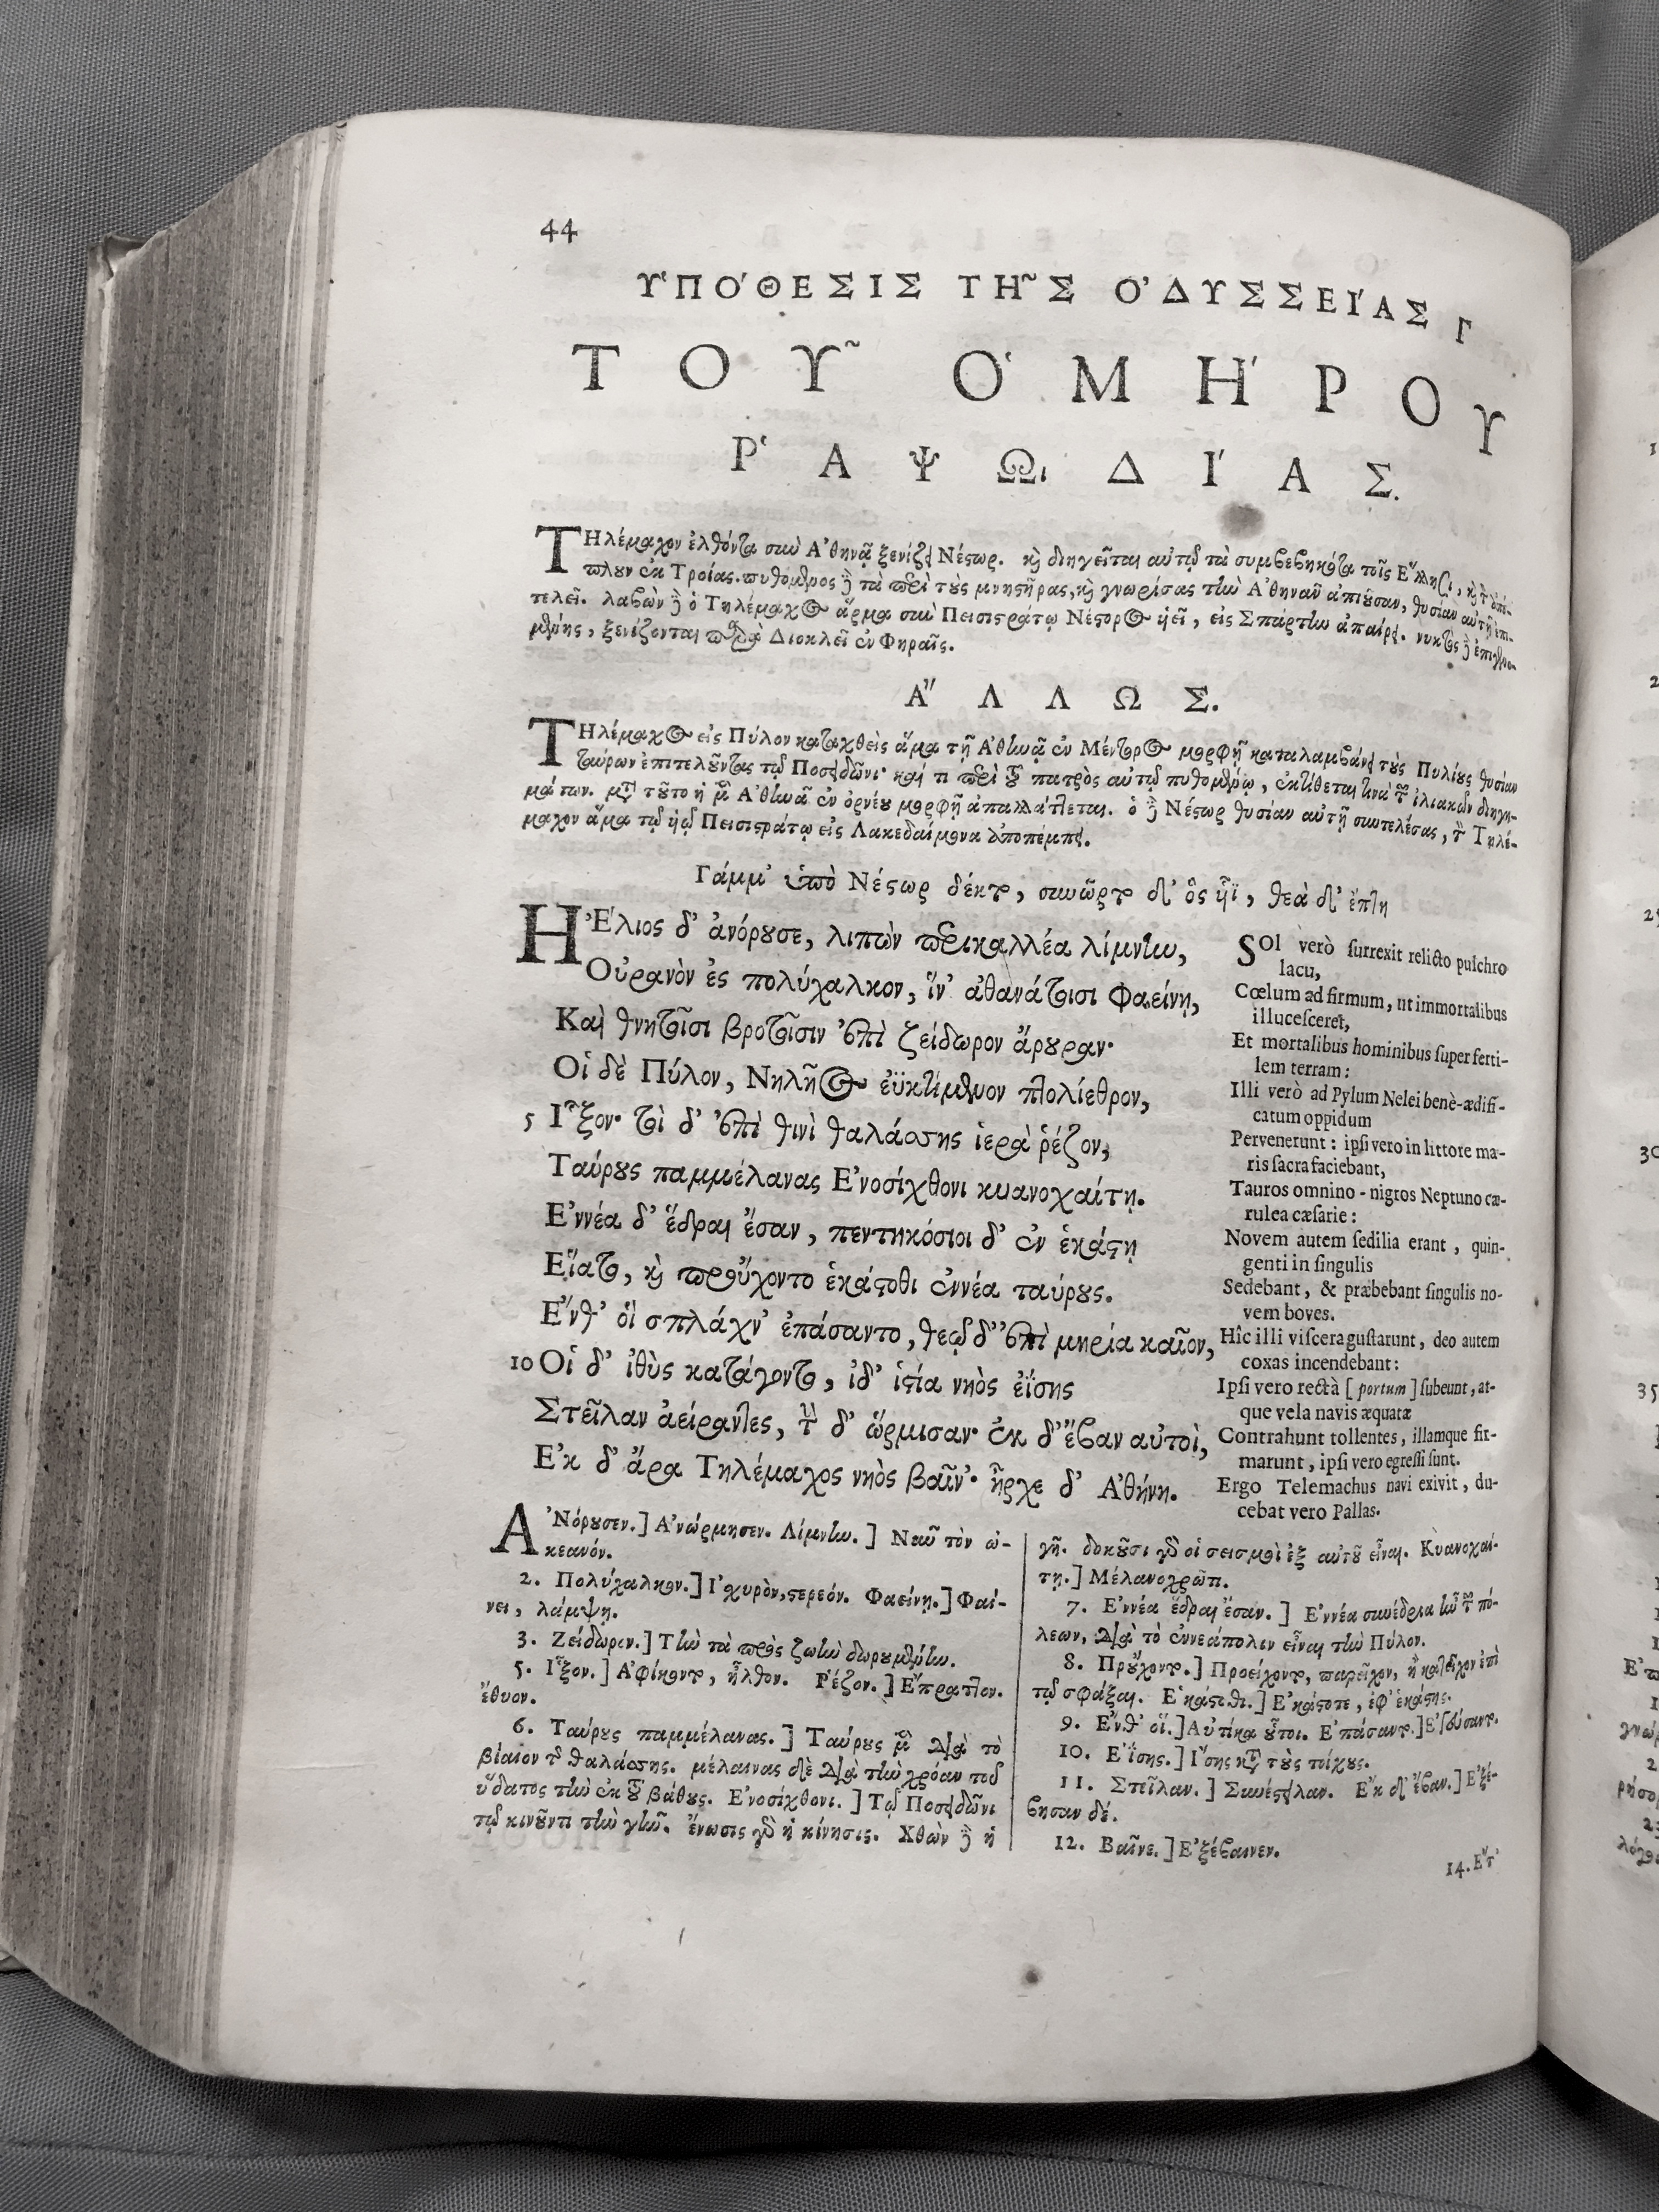 44
ΥΠΟΘΕΣΙΣ ΤΗΣ ΟΔΥΣΣΕΙΑΣ Γ
ΤΟΥ ΟΜΗΡΟΥ
ΡΑΨΩΙΔΙΑΣ.
ΤΗλέμαχον ἐλθόντα σὺν Ἀθηνᾷ ξενίζει Νέστωρ. καὶ διηγεῖται αὐτῷ τὰ συμβεβηκότα τοῖς Ἕλλησι, καὶ τὸν ἀπό-
πλουν ἐκ Τροίας. πυθόμενος δὲ τὰ περὶ τοὺς μνηστῆρας, καὶ γνωρίσας τὴν Ἀθηνᾶν ἀπιοῦσαν, θυσίαν αὐτῇ ἐπι-
τελεῖ. λαβὼν δὲ ὁ Τηλέμαχος ἅρμα σὺν Πεισιστράτῳ Νέστορος υἱεῖ, εἰς Σπάρτην ἀπαίρει. νυκτὸς δὲ ἐπιγενο-
μένης, ξενίζονται παρὰ Διοκλεῖ ἐν Φηραῖς.
ΑΛΛΩΣ.
ΤΗλέμαχος εἰς Πύλον καταχθεὶς ἅμα τῇ Ἀθηνᾷ ἐν Μέντορος μορφῇ καταλαμβάνει τοὺς Πυλίους θυσίαν
ταύρων ἐπιτελοῦντας τῷ Ποσειδῶνι· καί τι περὶ τοῦ πατρὸς αὐτῷ πυθομένῳ, ἐκτίθεται τινὰ τῶν ἰλιακῶν διηγη-
μάτων. μετὰ τοῦτο ἡ μὲν Ἀθηνᾶ ἐν ὀρνέου μορφῇ ἀπαλλάττεται. ὁ δὲ Νέστωρ θυσίαν αὐτῇ συντελέσας, τὸν Τηλέ-
μαχον ἅμα τῷ υἱῷ Πεισιστράτῳ εἰς Λακεδαίμονα ἀποπέμπει.
Γάμμ' ὑπὸ Νέστωρ δέκτο, συνῶρτο δ' ὃς υἷϊ, θεὰ δ' ἔπτη
ΗἘλιος δ' ἀνόρουσε, λιπὼν περικαλλέα λίμνην,
Οὐρανὸν ἐς πολύχαλκον, ἵν' ἀθανάτοισι φαείνῃ,
Καὶ θνητοῖσι βροτοῖσιν ἐπὶ ζείδωρον ἄρουραν·
Οἱ δὲ Πύλον, Νηλῆος ἐϋκτίμενον πτολίεθρον,
5 Ἷξον· τοὶ δ' ἐπὶ θινὶ θαλάσσης ἱερὰ ῥέζον,
Ταύρους παμμέλανας Ἐνοσίχθονι κυανοχαίτῃ.
Ἐννέα δ' ἕδραι ἔσαν, πεντηκόσιοι δ' ἐν ἑκάστῃ
Εἵατο, καὶ προὔχοντο ἑκάστοθι ἐννέα ταύρους.
Ἔνθ' οἱ σπλάχν' ἐπάσαντο, θεῷ δ' ἐπὶ μηρία καῖον,
10 Οἱ δ' ἰθὺς κατάγοντο, ἰδ' ἱστία νηὸς ἐΐσης
Στεῖλαν ἀείραντες, τὴν δ' ὥρμισαν· ἐκ δ' ἔβαν αὐτοὶ,
Ἐκ δ' ἄρα Τηλέμαχος νηὸς βαῖν'· ἦρχε δ' Ἀθήνη.
SOl verò surrexit relicto pulchro
lacu,
Cœlum ad firmum, ut immortalibus
illucesceret,
Et mortalibus hominibus super ferti-
lem terram:
Illi verò ad Pylum Nelei benè-ædifi-
catum oppidum
Pervenerunt: ipsi vero in littore ma-
ris sacra faciebant,
Tauros omnino-nigros Neptuno cæ-
rulea cæsarie:
Novem autem sedilia erant, quin-
genti in singulis
Sedebant, & præbebant singulis no-
vem boves.
Hîc illi viscera gustarunt, deo autem
coxas incendebant:
Ipsi vero rectà [portum] subeunt, at-
que vela navis æquatæ
Contrahunt tollentes, illamque fir-
marunt, ipsi vero egressi sunt.
Ergo Telemachus navi exivit, du-
cebat vero Pallas.
ἈΝόρουσεν.] Ἀνώρμησεν. Λίμνην.] Νῦν τὸν ὠ-
κεανόν.
2. Πολύχαλκον.] Ἰσχυρὸν, στερεόν. Φαείνῃ.] Φαί-
νει, λάμψῃ.
3. Ζείδωρον.] Τὴν τὰ πρὸς ζωὴν δωρουμένην.
5. Ἷξον.] Ἀφίκοντο, ἦλθον. Ῥέζον.] Ἔπραττον.
ἔθυον.
6. Ταύρους παμμέλανας.] Ταύρους μὲν διὰ τὸ
βίαιον τῆς θαλάσσης. μέλαινας δὲ διὰ τὴν χρόαν τοῦ
ὕδατος τὴν ἐκ τοῦ βάθους. Ἐνοσίχθονι.] Τῷ Ποσειδῶνι
τῷ κινοῦντι τὴν γῆν. ἔνωσις γὰρ ἡ κίνησις. Χθὼν δὲ ἡ
γῆ. δοκοῦσι γὰρ οἱ σεισμοὶ ἐξ αὐτοῦ εἶναι. Κυανοχαί-
τῃ.] Μελανοχρῶτι.
7. Ἐννέα ἕδραι ἔσαν.] Ἐννέα συνέδρια ἦν τῶν πό-
λεων, διὰ τὸ ἐννεάπολιν εἶναι τὴν Πύλον.
8. Προὔχοντο.] Προείχοντο, παρεῖχον, ἢ κατεῖχον ἐπὶ
τῷ σφάξαι. Ἑκάστοθι.] Ἑκάστοτε, ἐφ' ἑκάστης.
9. Ἔνθ' οἵ.] Αὐτίκα οὗτοι. Ἐπάσαντο.] Ἐγεύσαντο.
10. Ἐΐσης.] Ἴσης κατὰ τοὺς τοίχους.
11. Στεῖλαν.] Συνέστειλαν. Ἐκ δ' ἔβαν.] Ἐξέ-
βησαν δέ.
12. Βαῖνε.] Ἐξέβαινεν.
14. Ἔτ'